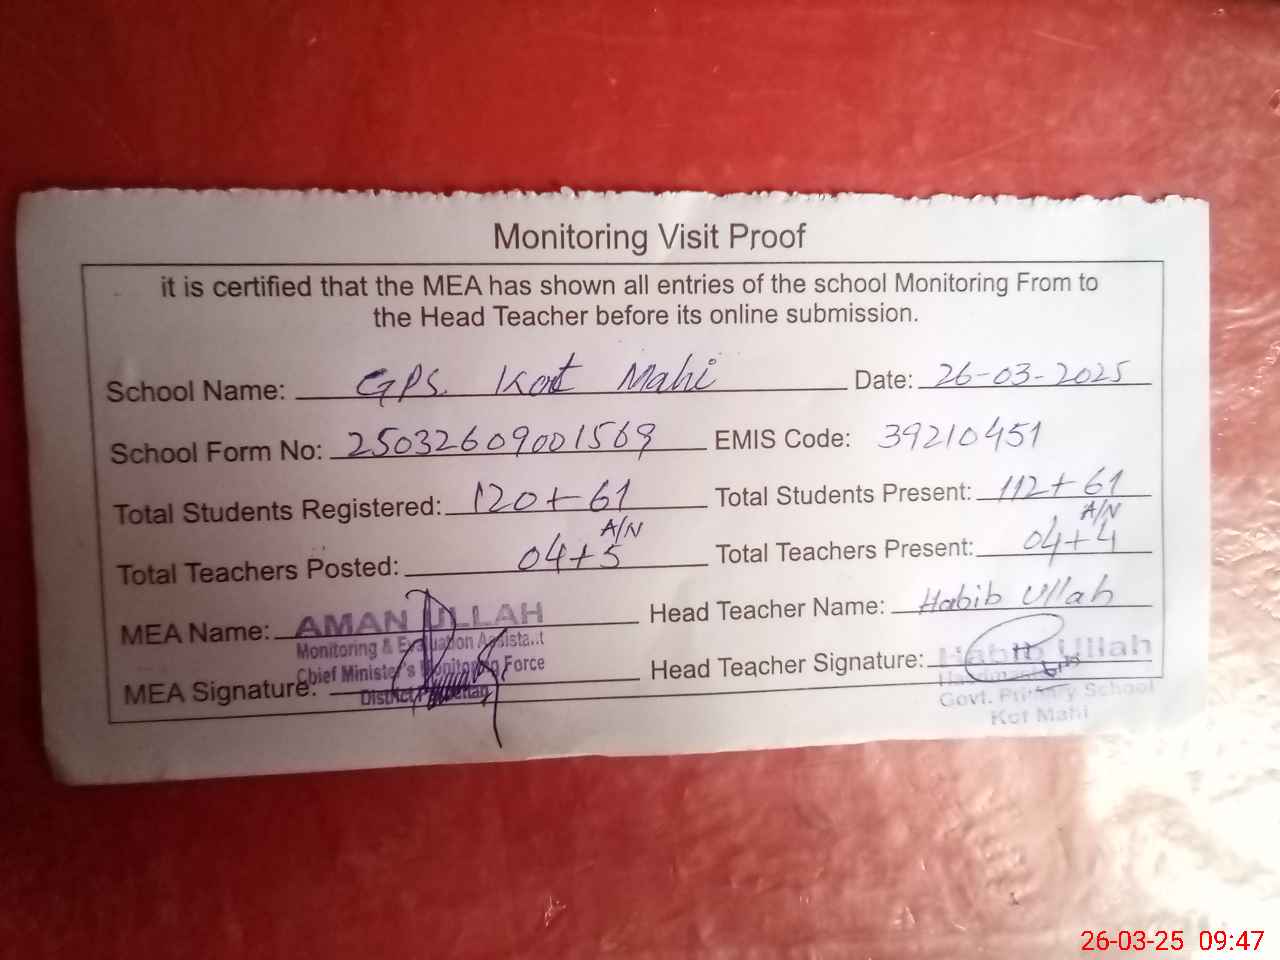 Monitoring Visit Proof
it is certified that the MEA has shown all entries of the school Monitoring From to
the Head Teacher before its online submission.
School Name: GPS. Kot Mahi Date: 26-03-2025
School Form No: 25032609001569 EMIS Code: 39210451
Total Students Registered: 120+61 Total Students Present: 112+61
A/N A/N
Total Teachers Posted: 04+5 Total Teachers Present: 04+4
MEA Name: AMAN ULLAH Head Teacher Name: Habib Ullah
Monitoring & Evaluation Assistant
Chief Minister's Monitoring Force
MEA Signature: District Head Teacher Signature: Habib Ullah
Govt. Primary School
Kot Mahi
26-03-25 09:47